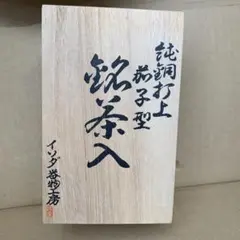 純銅打上
茄子型
銘茶入
イソダ器物工房